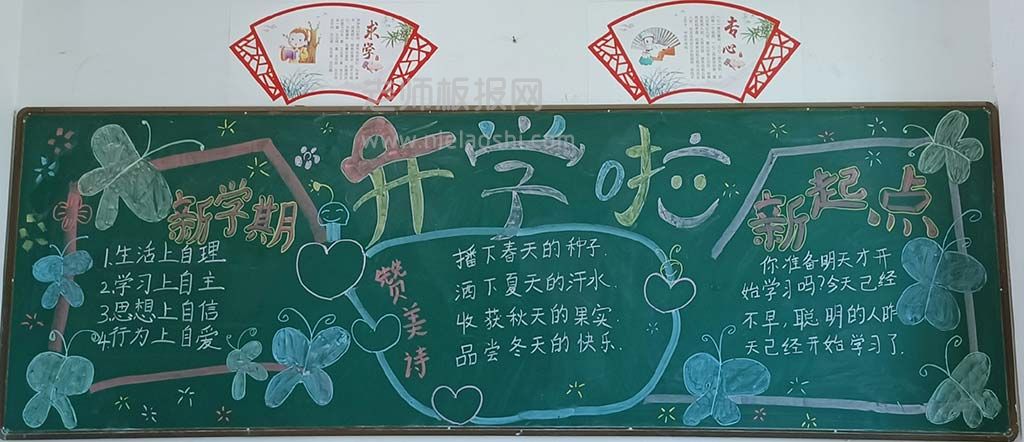 求学
杏心
师板报网
开学啦
新学期
1.生活上自理
2.学习上自主
3.思想上自信
4.行为上自爱
赞美诗
播下春天的种子.
洒下夏天的汗水.
收获秋天的果实.
品尝冬天的快乐.
新起点
你准备明天才开
始学习吗?今天已经
不早,聪明的人昨
天已经开始学习了.